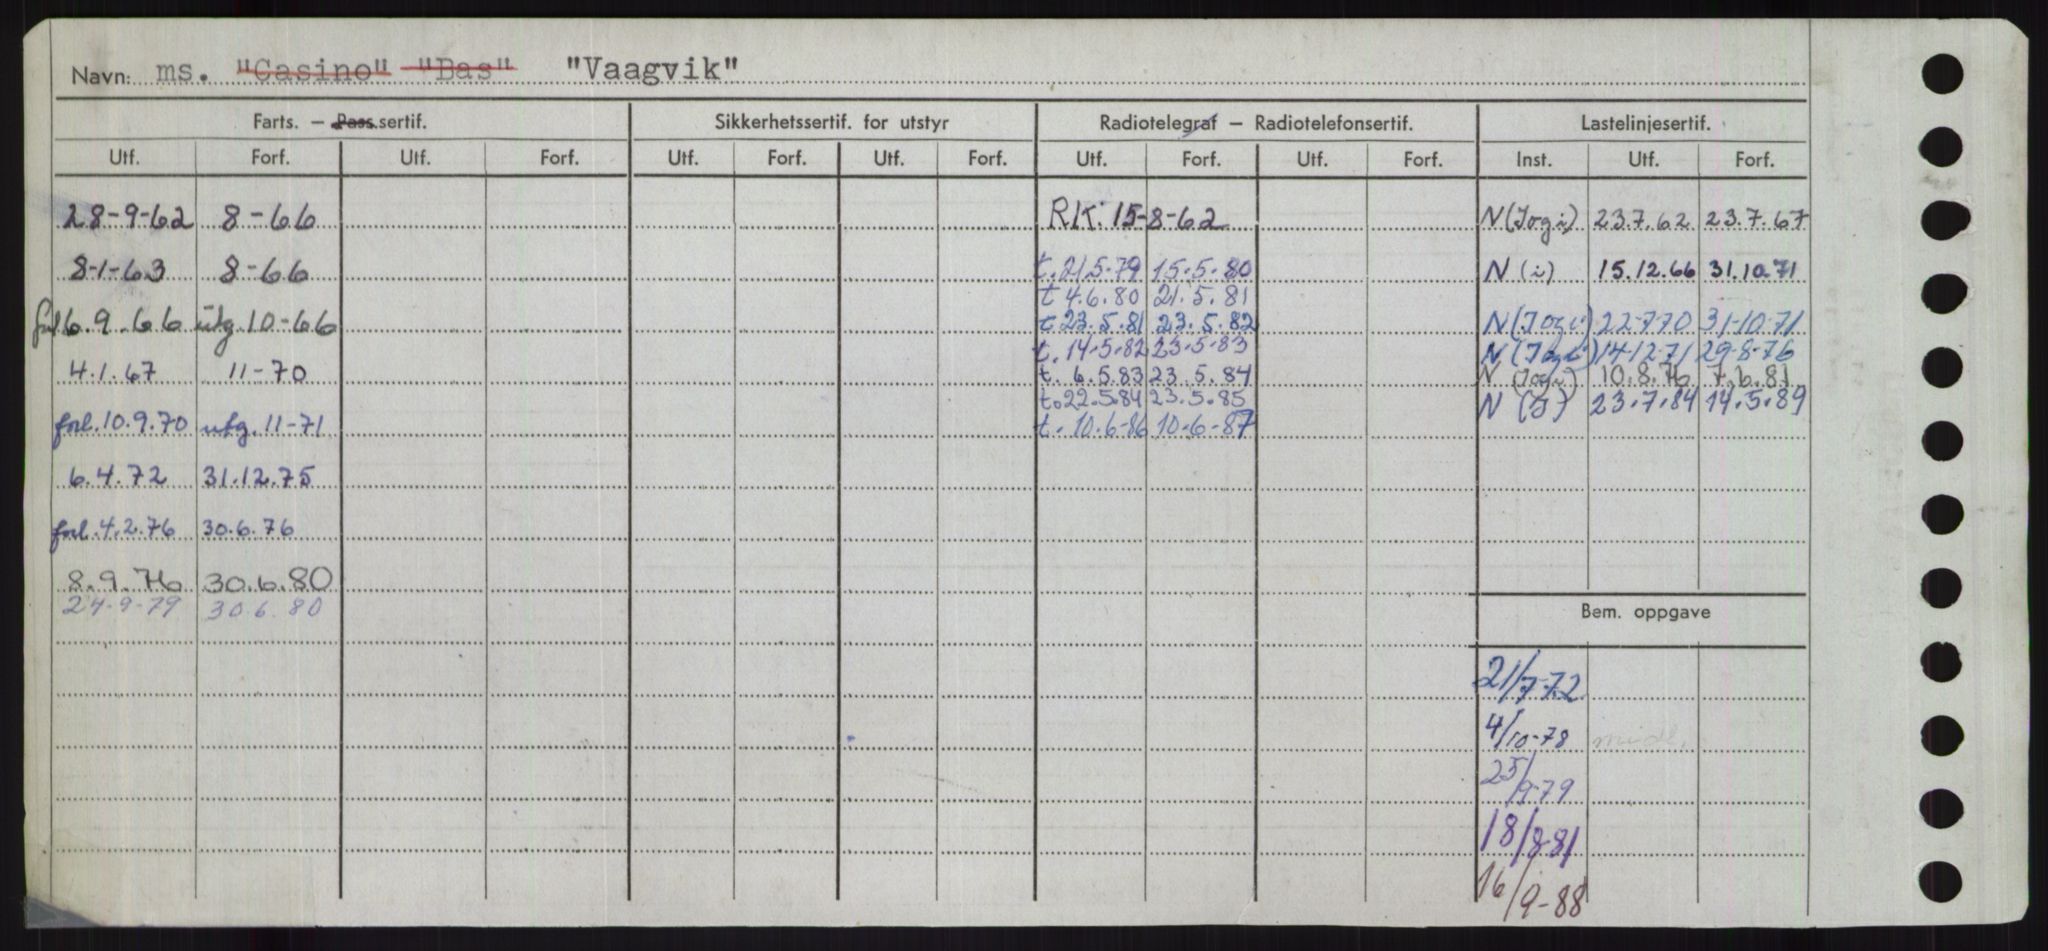 Navn: ms. "Casino" "Bas" "Vaagvik"
Farts. – Pass.sertif. Sikkerhetssertif. for utstyr Radiotelegraf – Radiotelefonsertif. Lastelinjesertif.
Utf. Forf. Utf. Forf. Utf. Forf. Utf. Forf. Utf. Forf. Utf. Forf. Inst. Utf. Forf.
28-9-62 8-66 R.K. 15-8-62 N (I og i) 23.7.62 23.7.67
8-1-63 8-66 t. 21.5.79 15.5.80 N (i) 15.12.66 31.10.71
t 4.6.80 21.5.81
forl 6.9.66 utg. 10-66 t 23.5.81 23.5.82 N (I og i) 22.7.70 31-10-71
t. 14.5.82 23.5.83 N (I og i) 14.12.71 29-8-76
4.1.67 11-70 t. 6.5.83 23.5.84 N (I og i) 10.8.76 7.6.81
t. 22.5.84 23.5.85 N (I) 23.7.84 14.5.89
forl. 10.9.70 utg. 11-71 t. 10.6-86 10-6-87
6.4.72 31.12.75
forl. 4.2.76 30.6.76
8.9.76 30.6.80
24-9-79 30.6.80
Bem. oppgave
21/7-72
4/10-78 midl.
25/9-79
18/8-81
16/9-88